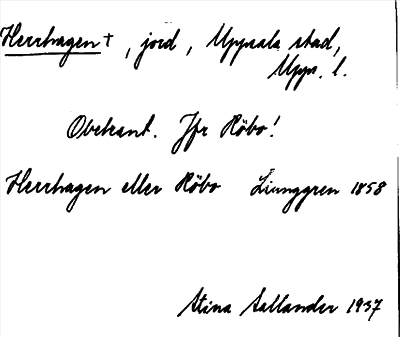 Herrhagen †, jord, Uppsala stad,
Upps. l.
Obekant. Jfr Röbo!
Herrhagen eller Röbo Ljunggren 1858
Stina Sallander 1937